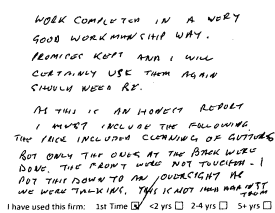 WORK COMPLETED IN A VERY
GOOD WORKMANSHIP WAY.
PROMISES KEPT AND I WILL
CERTAINLY USE THEM AGAIN
SHOULD NEED BE.
AS THIS IS AN HONEST REPORT
I MUST INCLUDE THE FOLLOWING
THE PRICE INCLUDED CLEANING OF GUTTERS
BUT ONLY THE ONES AT THE BACK WERE
DONE. THE FRONT WERE NOT TOUCHED - I
PUT THIS DOWN TO AN OVERSIGHT AS
WE WERE TALKING. THIS IS NOT HELD AGAINST
THEM
I have used this firm: 1st Time ☑ <2 yrs ☐ 2-4 yrs ☐ 5+ yrs ☐